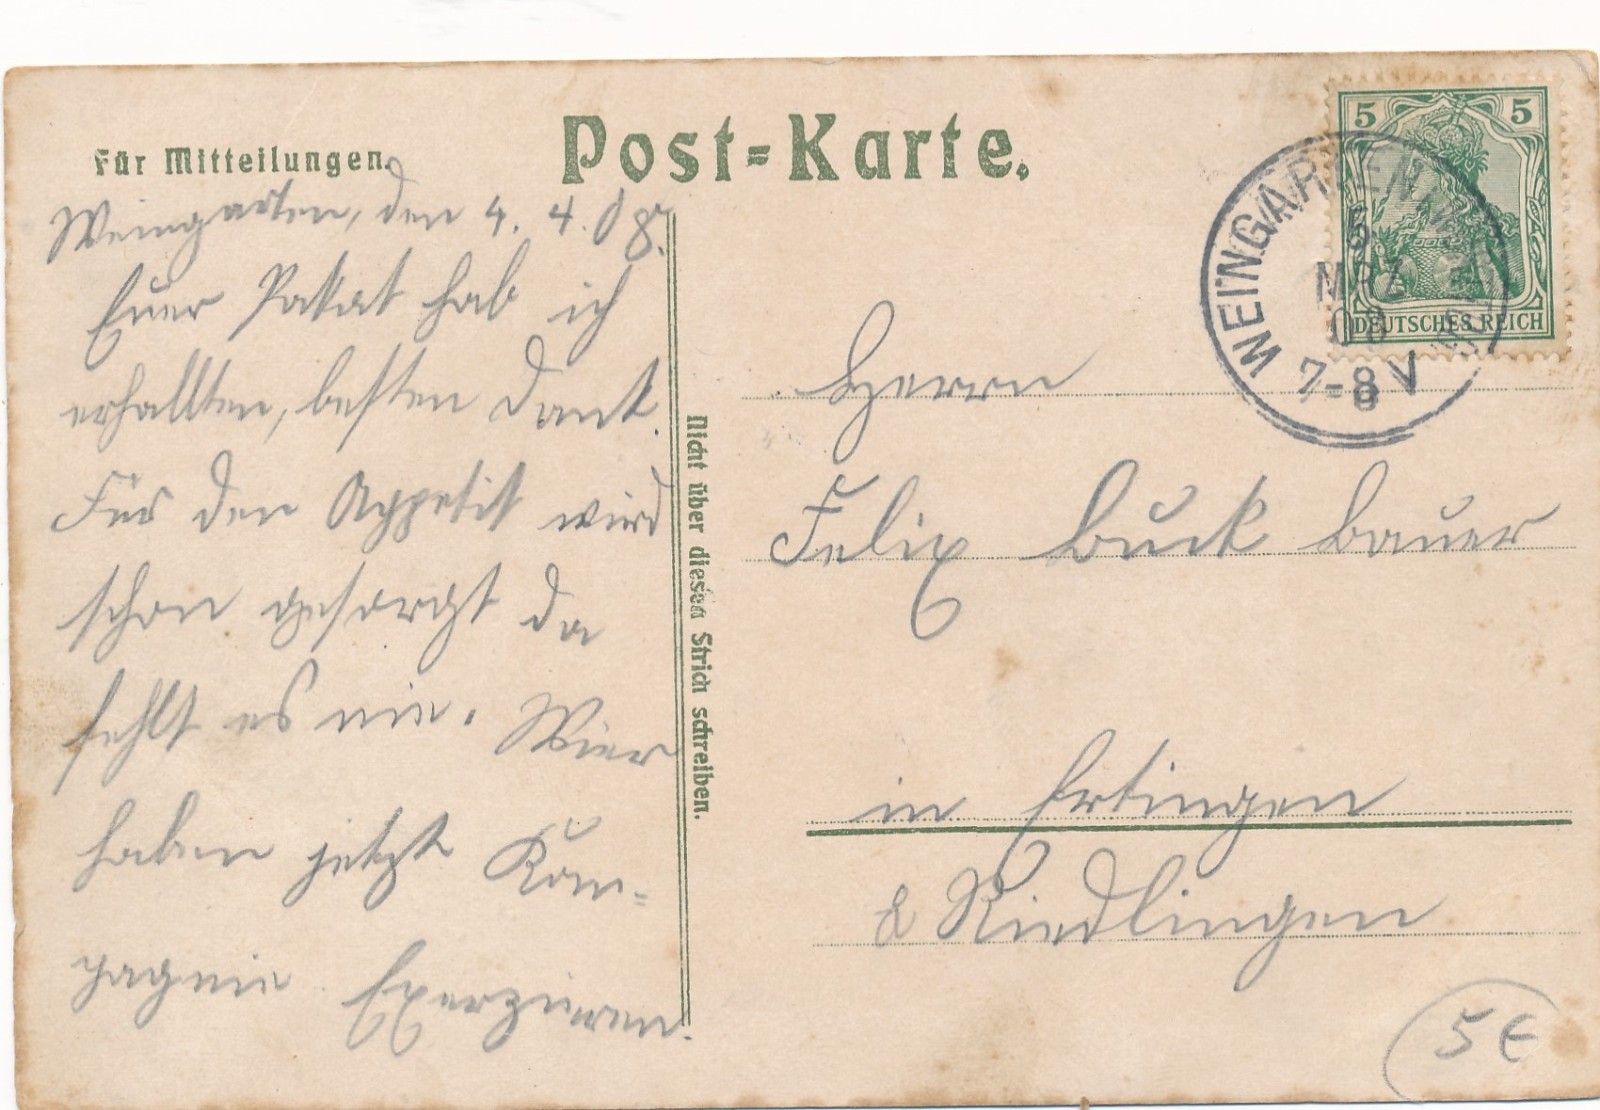 Für Mitteilungen.
Post-Karte.
Weingarten, den 4. 4. 08.
Euer Pakat hab ich
erhallten, besten Dank.
Für den Appetit wird
schon gesorgt da
fehlt es nie. Wier
haben jetzt Kom-
pagnie Exerzieren.
Nicht über diesen Strich schreiben.
5 5
DEUTSCHES REICH
WEINGARTEN
5
MRZ
08
7-8 V
Herrn
Felix Buck Bauer
in Ertingen
Riedlingen
5 €